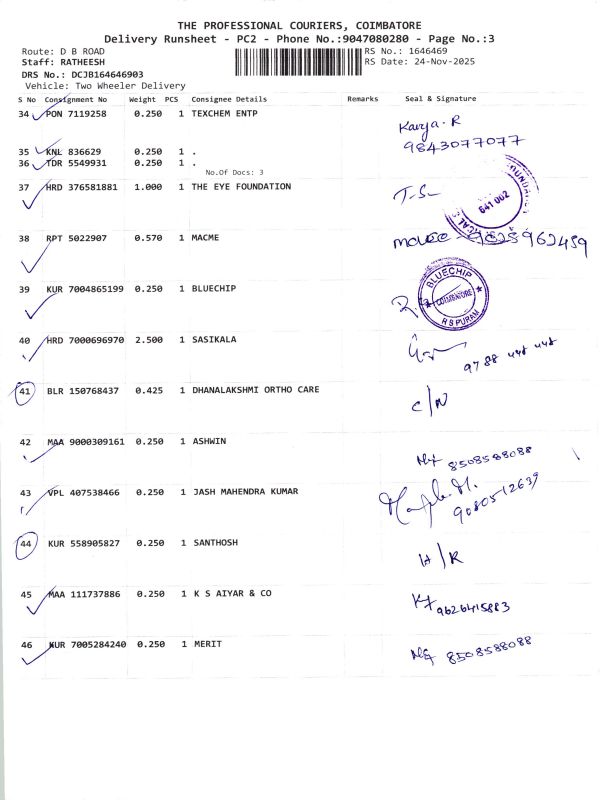 THE PROFESSIONAL COURIERS, COIMBATORE
Delivery Runsheet - PC2 - Phone No.:9047080280 - Page No.:3
Route: D B ROAD RS No.: 1646469
Staff: RATHEESH RS Date: 24-Nov-2025
DRS No.: DCJB164646903
Vehicle: Two Wheeler Delivery
S No Consignment No Weight PCS Consignee Details Remarks Seal & Signature
34 PON 7119258 0.250 1 TEXCHEM ENTP Kavya. R
9843077077
35 KNL 836629 0.250 1 .
36 TDR 5549931 0.250 1 .
No.Of Docs: 3
37 HRD 376581881 1.000 1 THE EYE FOUNDATION
641 002
38 RPT 5022907 0.570 1 MACME
39 KUR 7004865199 0.250 1 BLUECHIP
BLUECHIP
COIMBATORE
R S PURAM
40 HRD 7000696970 2.500 1 SASIKALA
41 BLR 150768437 0.425 1 DHANALAKSHMI ORTHO CARE C/N
42 MAA 9000309161 0.250 1 ASHWIN 8508588088
43 VPL 407538466 0.250 1 JASH MAHENDRA KUMAR
9080512639
44 KUR 558905827 0.250 1 SANTHOSH H/R
45 MAA 111737886 0.250 1 K S AIYAR & CO 9626415883
46 KUR 7005284240 0.250 1 MERIT 8508588088